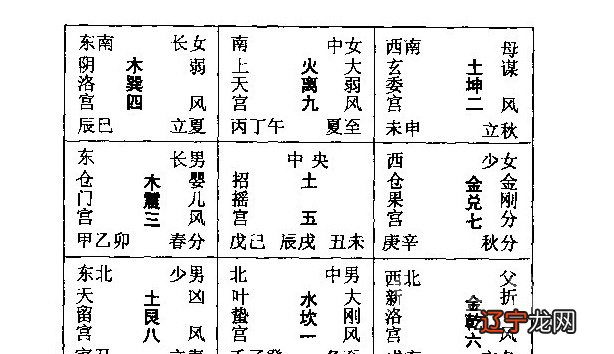 东南 长女
阴洛宫
木巽四
弱风
辰巳 立夏
南 中女
上天宫
火离九
大弱风
丙丁午 夏至
西南 母
玄委宫
土坤二
谋风
未申 立秋
东 长男
仓门宫
木震三
婴儿风
甲乙卯 春分
中央
招摇宫
土五
戊己 辰戌 丑未
西 少女
仓果宫
金兑七
金刚分
庚辛 秋分
东北 少男
天留宫
土艮八
凶风
北 中男
叶蛰宫
水坎一
大刚风
西北 父
新洛宫
金乾六
折风
辽宁龙网